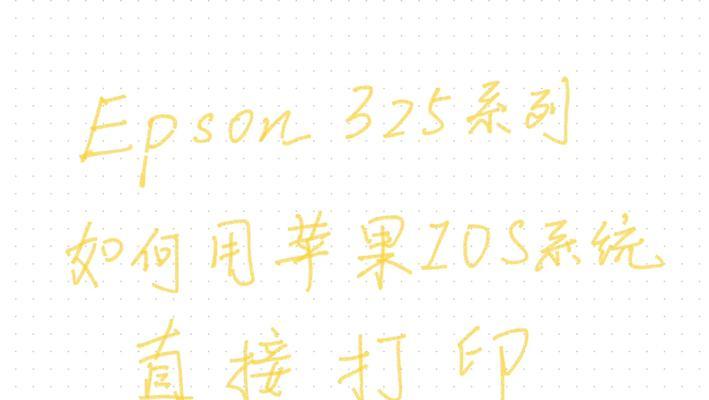 Epson 325系列
如何用苹果IOS系统
直接打印